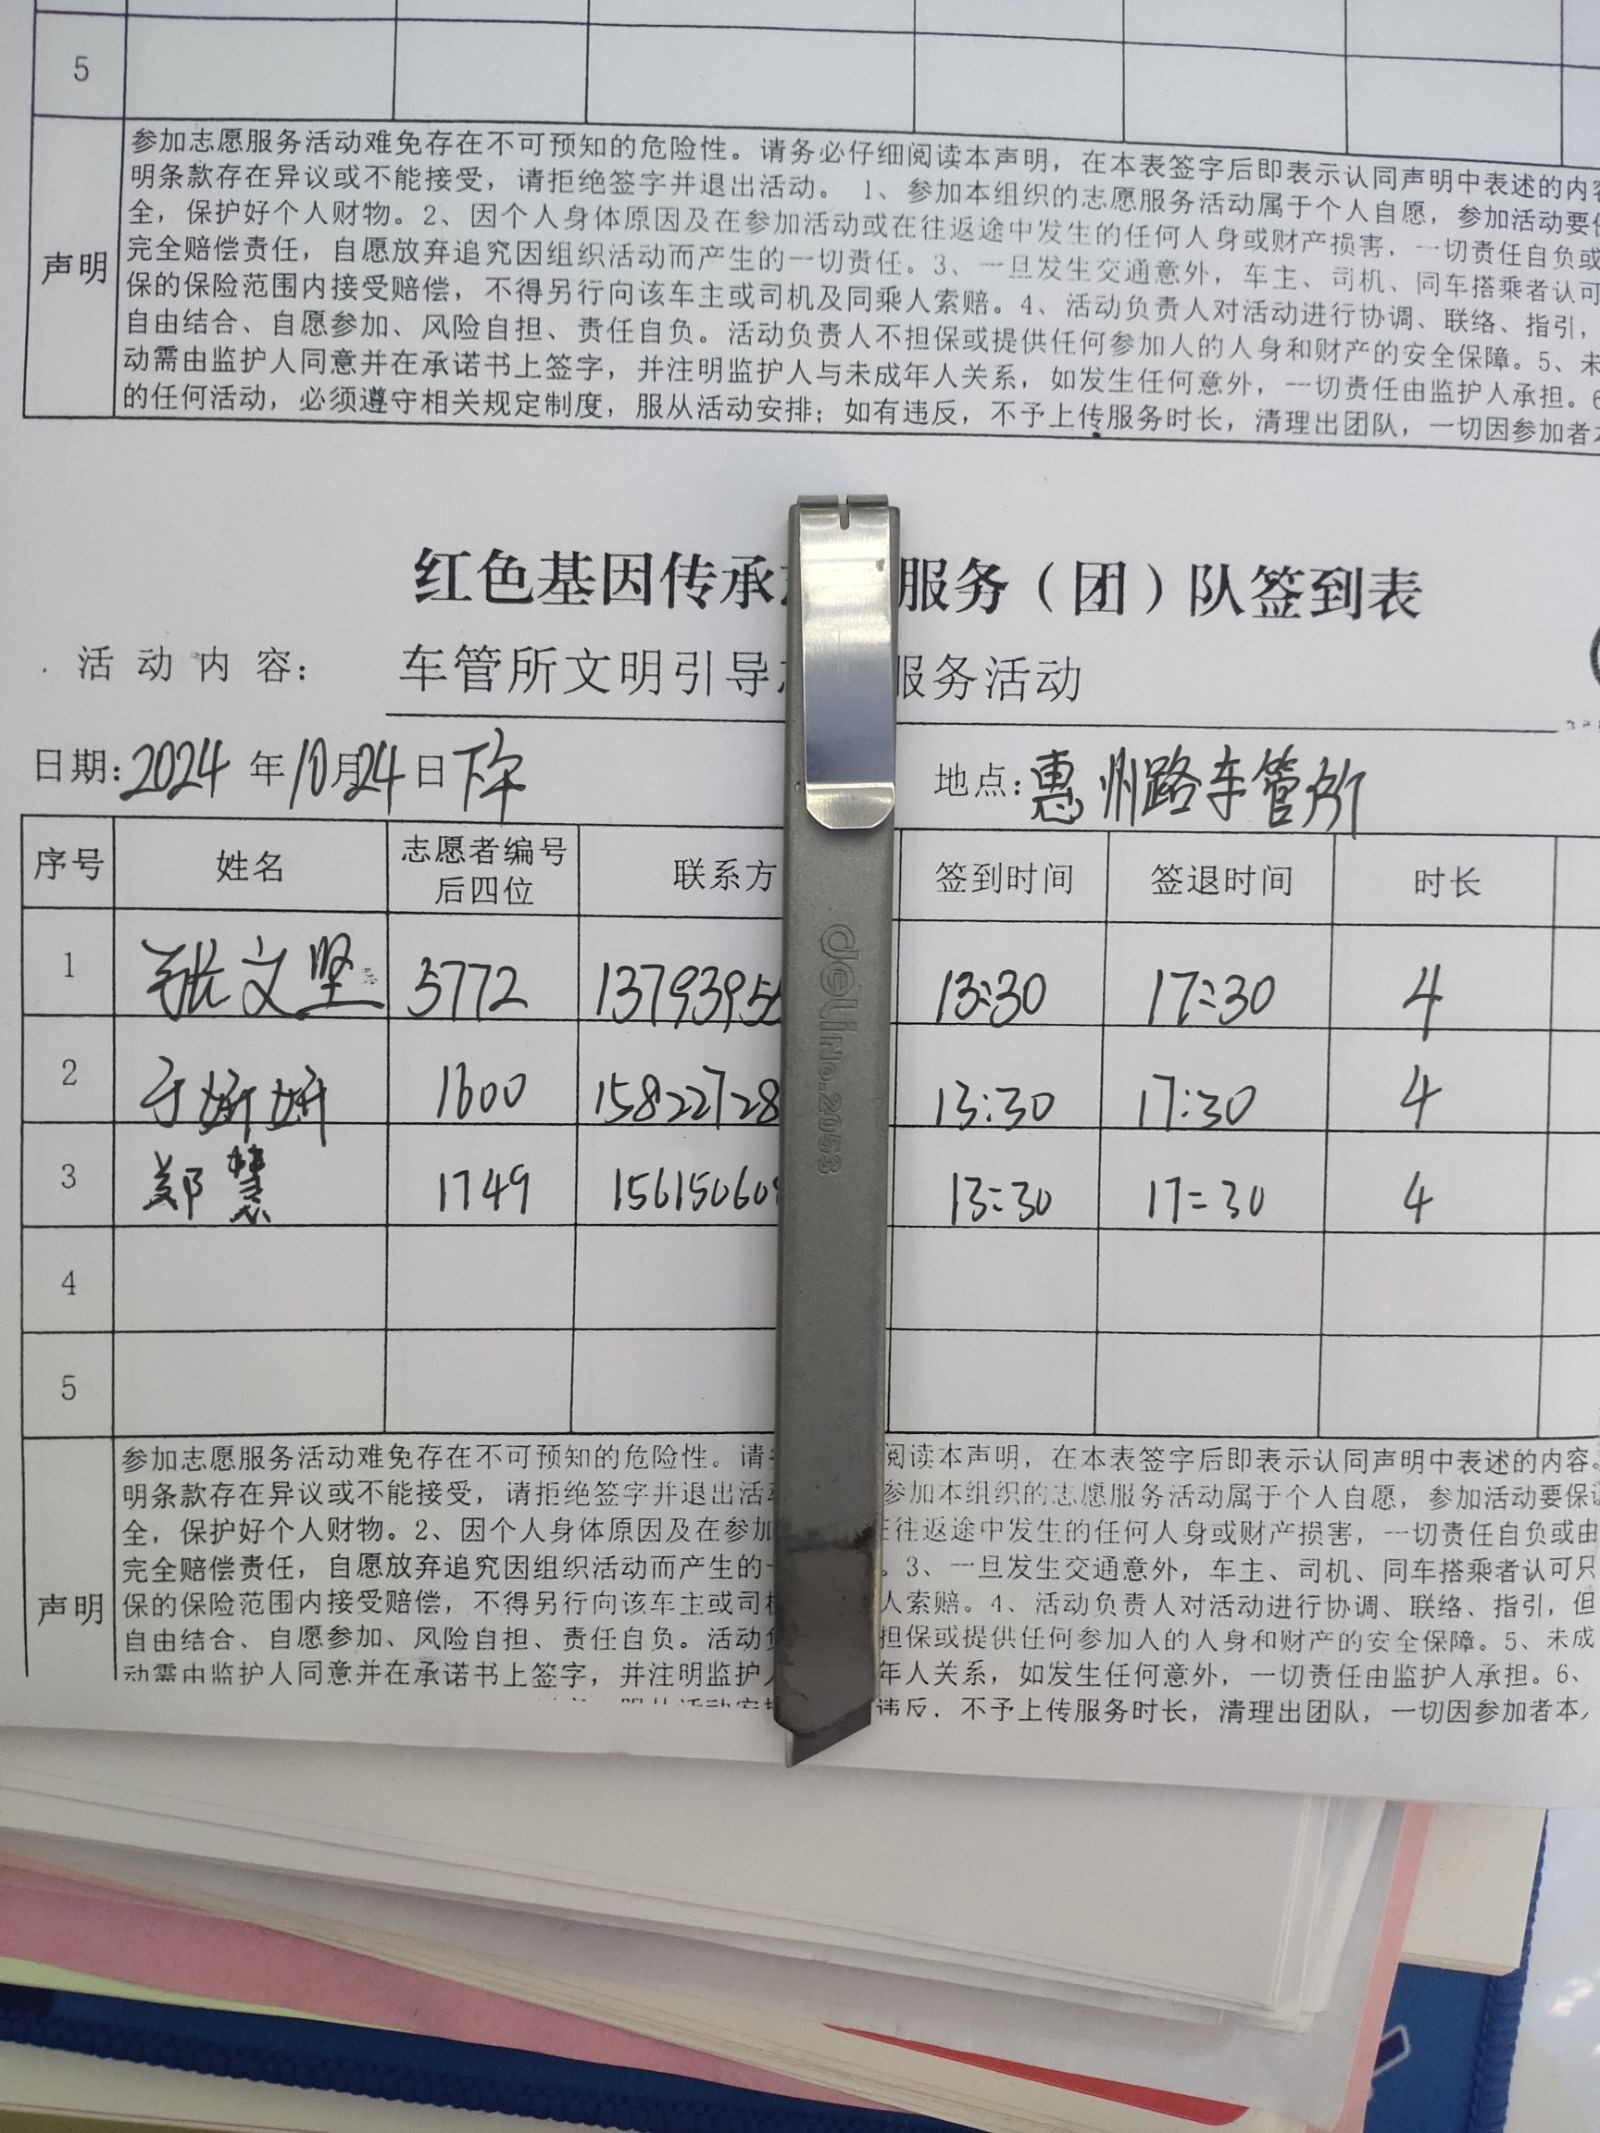 5
声明
参加志愿服务活动难免存在不可预知的危险性。请务必仔细阅读本声明，在本表签字后即表示认同声明中表述的内容
明条款存在异议或不能接受，请拒绝签字并退出活动。 1、参加本组织的志愿服务活动属于个人自愿，参加活动要保
全，保护好个人财物。2、因个人身体原因及在参加活动或在往返途中发生的任何人身或财产损害，一切责任自负或
完全赔偿责任，自愿放弃追究因组织活动而产生的一切责任。3、一旦发生交通意外，车主、司机、同车搭乘者认可
保的保险范围内接受赔偿，不得另行向该车主或司机及同乘人索赔。4、活动负责人对活动进行协调、联络、指引，
自由结合、自愿参加、风险自担、责任自负。活动负责人不担保或提供任何参加人的人身和财产的安全保障。5、未
动需由监护人同意并在承诺书上签字，并注明监护人与未成年人关系，如发生任何意外，一切责任由监护人承担。6
的任何活动，必须遵守相关规定制度，服从活动安排；如有违反，不予上传服务时长，清理出团队，一切因参加者本
红色基因传承 服务（团）队签到表
活动内容： 车管所文明引导 服务活动
日期：2024年10月24日下午 地点：惠州路车管所
序号 姓名 志愿者编号后四位 联系方 签到时间 签退时间 时长
1 张文坚 5772 13793955 13:30 17:30 4
2 于妍妍 1600 15822728 13:30 17:30 4
3 郑慧 1749 15615060 13:30 17:30 4
4
5
deli No.2053
声明
参加志愿服务活动难免存在不可预知的危险性。请 阅读本声明，在本表签字后即表示认同声明中表述的内容。
明条款存在异议或不能接受，请拒绝签字并退出活 参加本组织的志愿服务活动属于个人自愿，参加活动要保证
全，保护好个人财物。2、因个人身体原因及在参加 在往返途中发生的任何人身或财产损害，一切责任自负或由
完全赔偿责任，自愿放弃追究因组织活动而产生的一 。3、一旦发生交通意外，车主、司机、同车搭乘者认可只
保的保险范围内接受赔偿，不得另行向该车主或司机 人索赔。4、活动负责人对活动进行协调、联络、指引，但
自由结合、自愿参加、风险自担、责任自负。活动负 担保或提供任何参加人的人身和财产的安全保障。5、未成
动需由监护人同意并在承诺书上签字，并注明监护人 年人关系，如发生任何意外，一切责任由监护人承担。6、
服从活动安排 违反，不予上传服务时长，清理出团队，一切因参加者本人